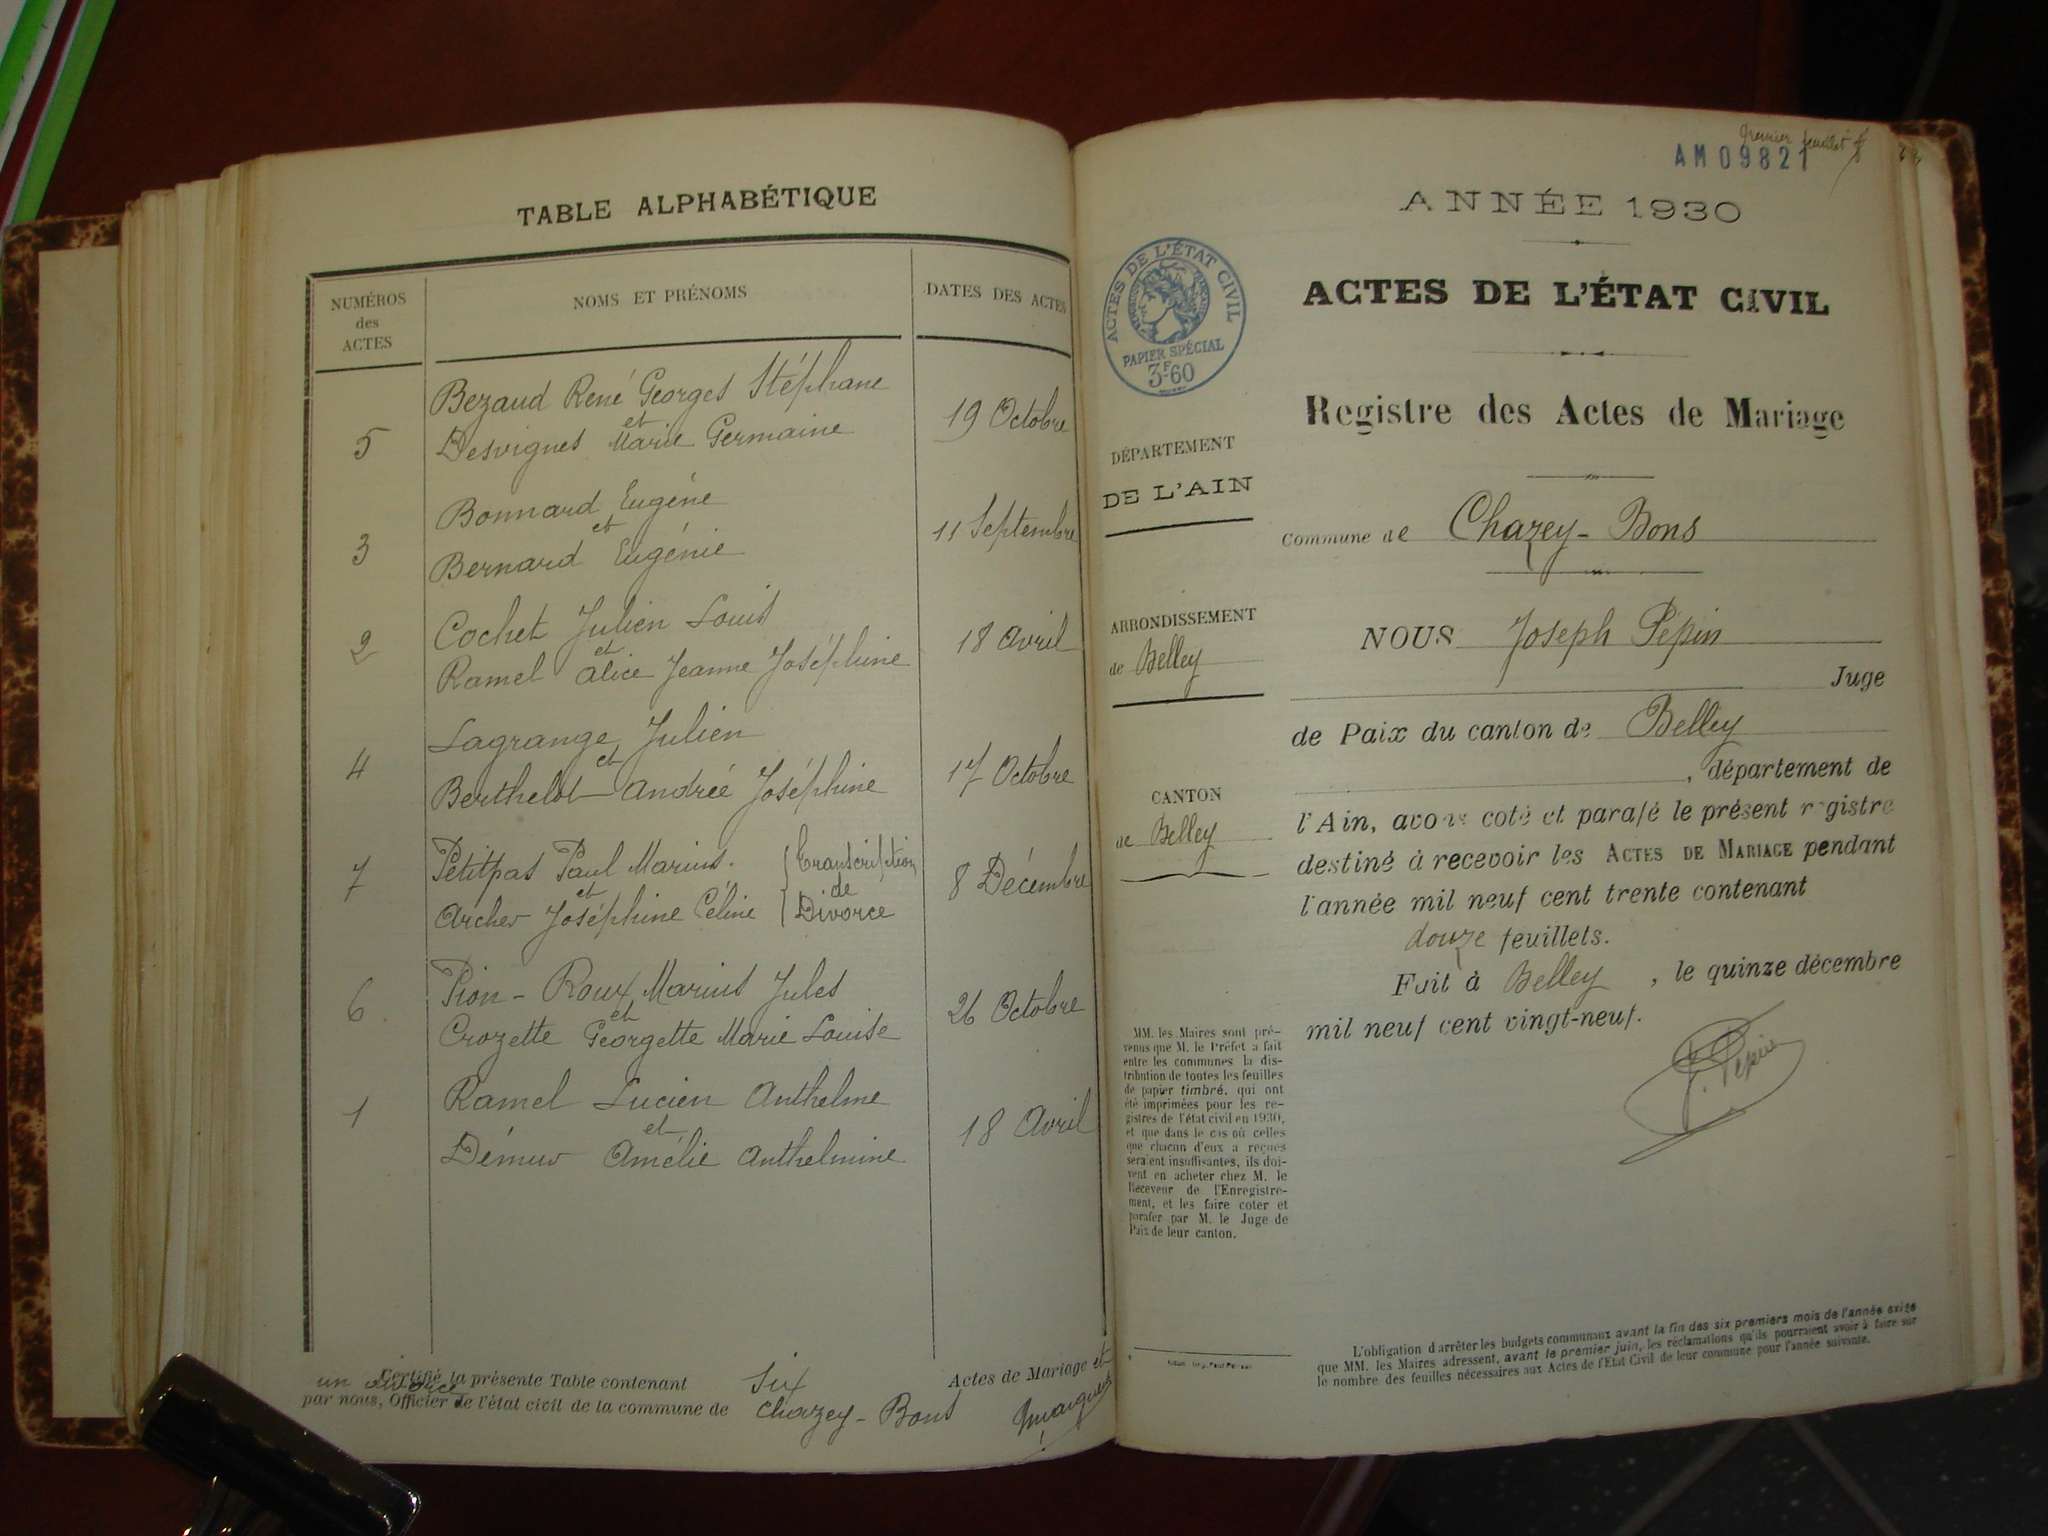 TABLE ALPHABÉTIQUE
NUMÉROS
des
ACTES
NOMS ET PRÉNOMS
DATES DES ACTES
5
Bezaud René Georges Stéphane
et
Desvignes Marie Germaine
19 Octobre
3
Bonnard Eugène
et
Bernard Eugénie
11 Septembre
2
Cochet Julien Louis
et
Ramel Alice Jeanne Joséphine
18 Avril
4
Lagrange Julien
et
Berthelot Andrée Joséphine
17 Octobre
7
Petitpas Paul Marius
et
Archer Joséphine Céline
Transcription
de
Divorce
8 Décembre
6
Pion-Roux Marius Jules
et
Crozette Georgette Marie Louise
26 Octobre
1
Ramel Lucien Anthelme
et
Démeur Amélie Anthelmine
18 Avril
Certifié la présente Table contenant six Actes de Mariage et
un divorce
par nous, Officier de l'état civil de la commune de Chazey-Bons
premier feuillet
AM 09821
ANNÉE 1930
ACTES DE L'ÉTAT CIVIL
PAPIER SPÉCIAL
3F60
ACTES DE L'ÉTAT CIVIL
Registre des Actes de Mariage
DÉPARTEMENT
DE L'AIN
Commune de Chazey-Bons
ARRONDISSEMENT
de Belley
CANTON
de Belley
NOUS Joseph Pépin
Juge
de Paix du canton de Belley
, département de
l'Ain, avons coté et parafé le présent registre
destiné à recevoir les ACTES DE MARIAGE pendant
l'année mil neuf cent trente contenant
douze feuillets.
Fait à Belley, le quinze décembre
mil neuf cent vingt-neuf.
J. Pépin
MM. les Maires sont pré-
venus que M. le Préfet a fait
entre les communes la dis-
tribution de toutes les feuilles
de papier timbré, qui ont
été imprimées pour les re-
gistres de l'état civil en 1930,
et que dans le cas où celles
que chacun d'eux a reçues
seraient insuffisantes, ils doi-
vent en acheter chez M. le
Receveur de l'Enregistre-
ment, et les faire coter et
parafer par M. le Juge de
Paix de leur canton.
L'obligation d'arrêter les budgets communaux avant la fin des six premiers mois de l'année exige
que MM. les Maires adressent, avant le premier juin, les réclamations qu'ils pourraient avoir à faire sur
le nombre des feuilles nécessaires aux Actes de l'État Civil de leur commune pour l'année suivante.